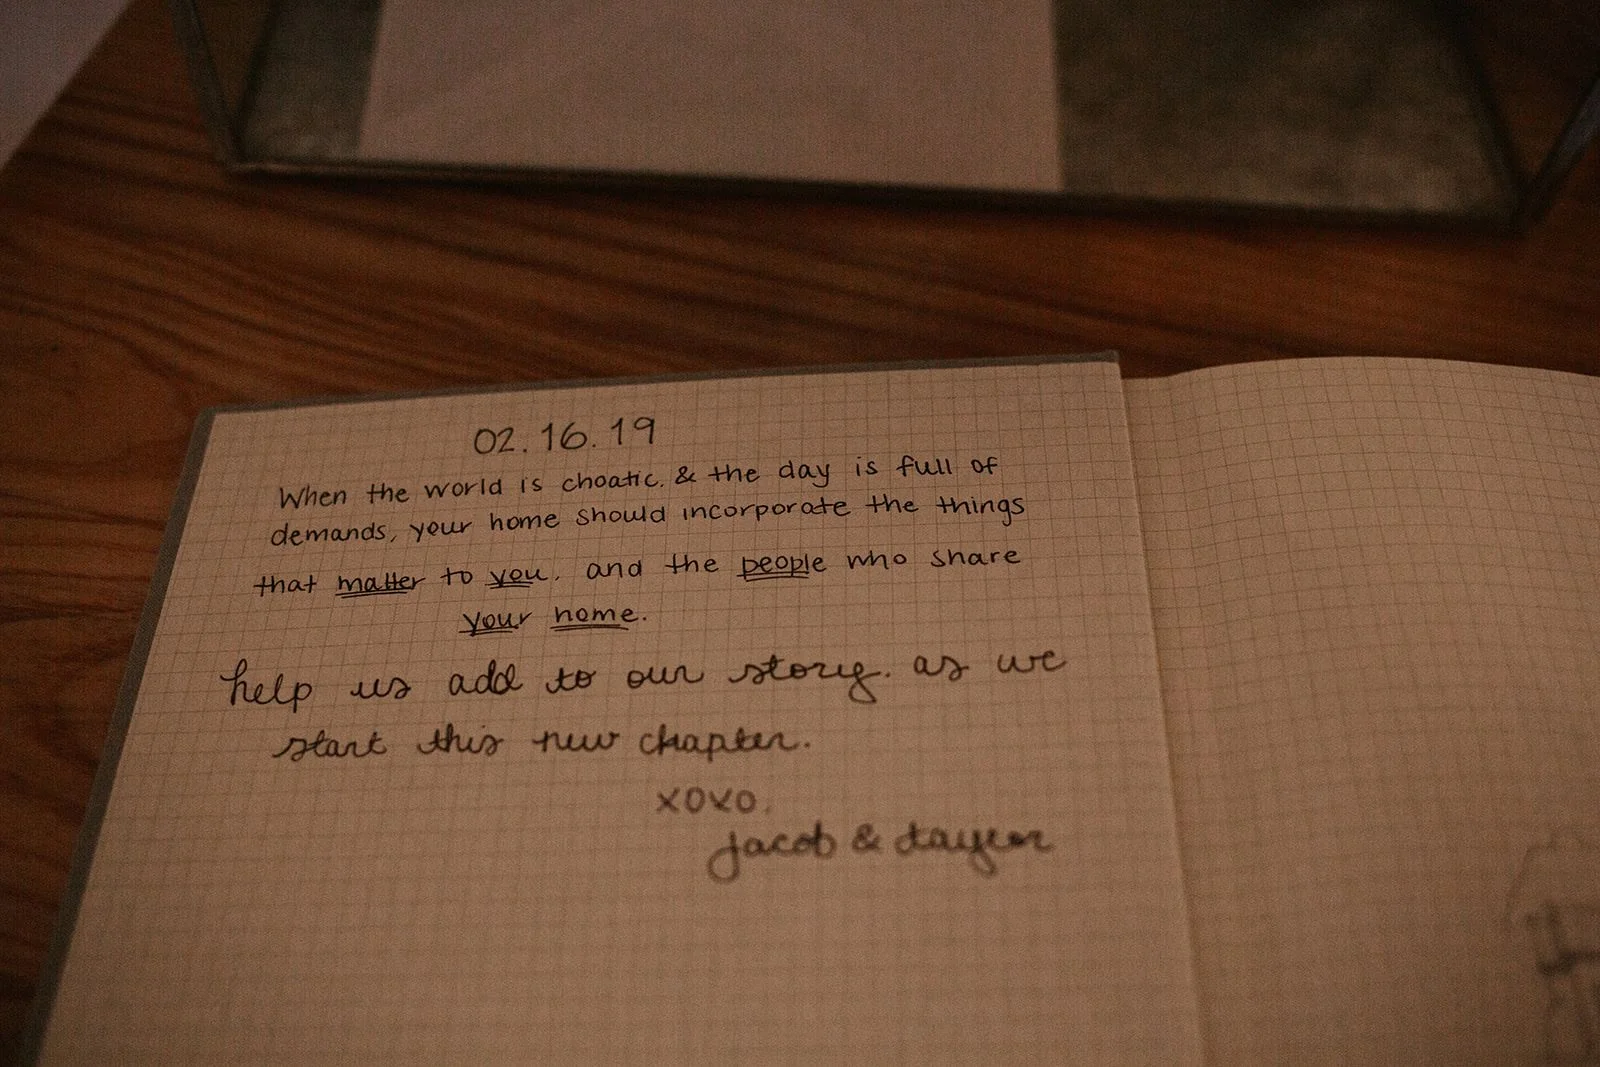 02.16.19
When the world is choatic. & the day is full of
demands, your home should incorporate the things
that matter to you, and the people who share
your home.
help us add to our story. as we
start this new chapter.
xoxo.
jacob & taylor